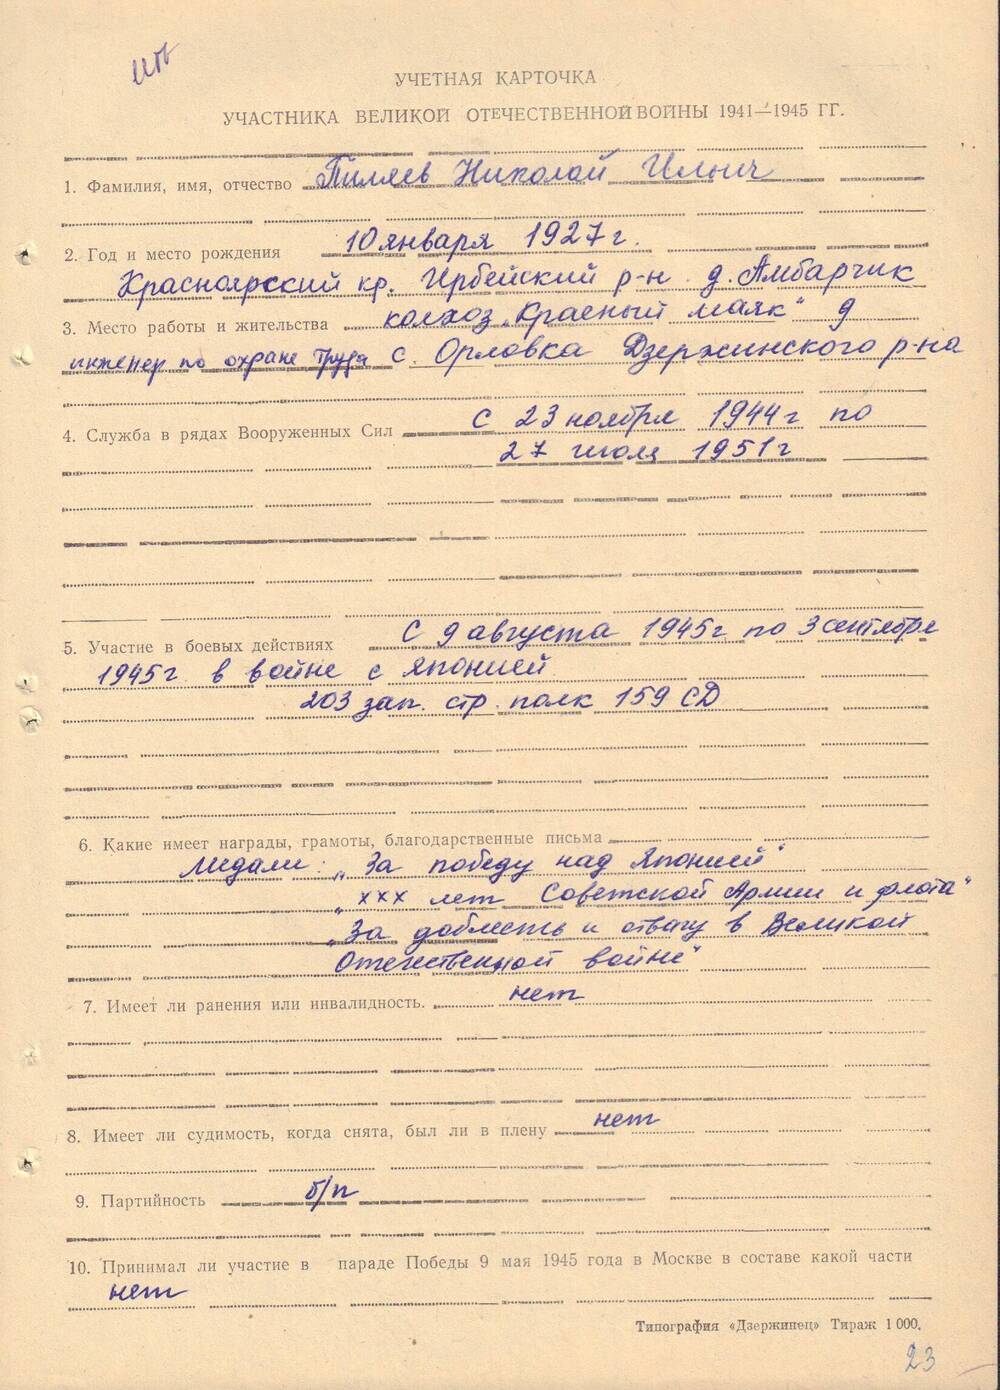 УЧЕТНАЯ КАРТОЧКА
УЧАСТНИКА ВЕЛИКОЙ ОТЕЧЕСТВЕННОЙ ВОЙНЫ 1941—1945 ГГ.
1. Фамилия, имя, отчество Пиляев Николай Ильич
2. Год и место рождения 10 января 1927 г.
Красноярский кр. Ирбейский р-н. д. Амбарчик
3. Место работы и жительства колхоз „Красный маяк"
инженер по охране труда с. Орловка Дзержинского р-на
4. Служба в рядах Вооруженных Сил с 23 ноября 1944 г по
27 июля 1951 г
5. Участие в боевых действиях С 9 августа 1945 г по 3 сентября
1945 г. в войне с Японией
203 зап. стр. полк 159 СД
6. Какие имеет награды, грамоты, благодарственные письма
медали: „За победу над Японией"
„ХХХ лет Советской Армии и флота"
„За доблесть и отвагу в Великой
Отечественной войне"
7. Имеет ли ранения или инвалидность. нет
8. Имеет ли судимость, когда снята, был ли в плену нет
9. Партийность б/п
10. Принимал ли участие в параде Победы 9 мая 1945 года в Москве в составе какой части
нет
Типография «Дзержинец» Тираж 1 000.
23